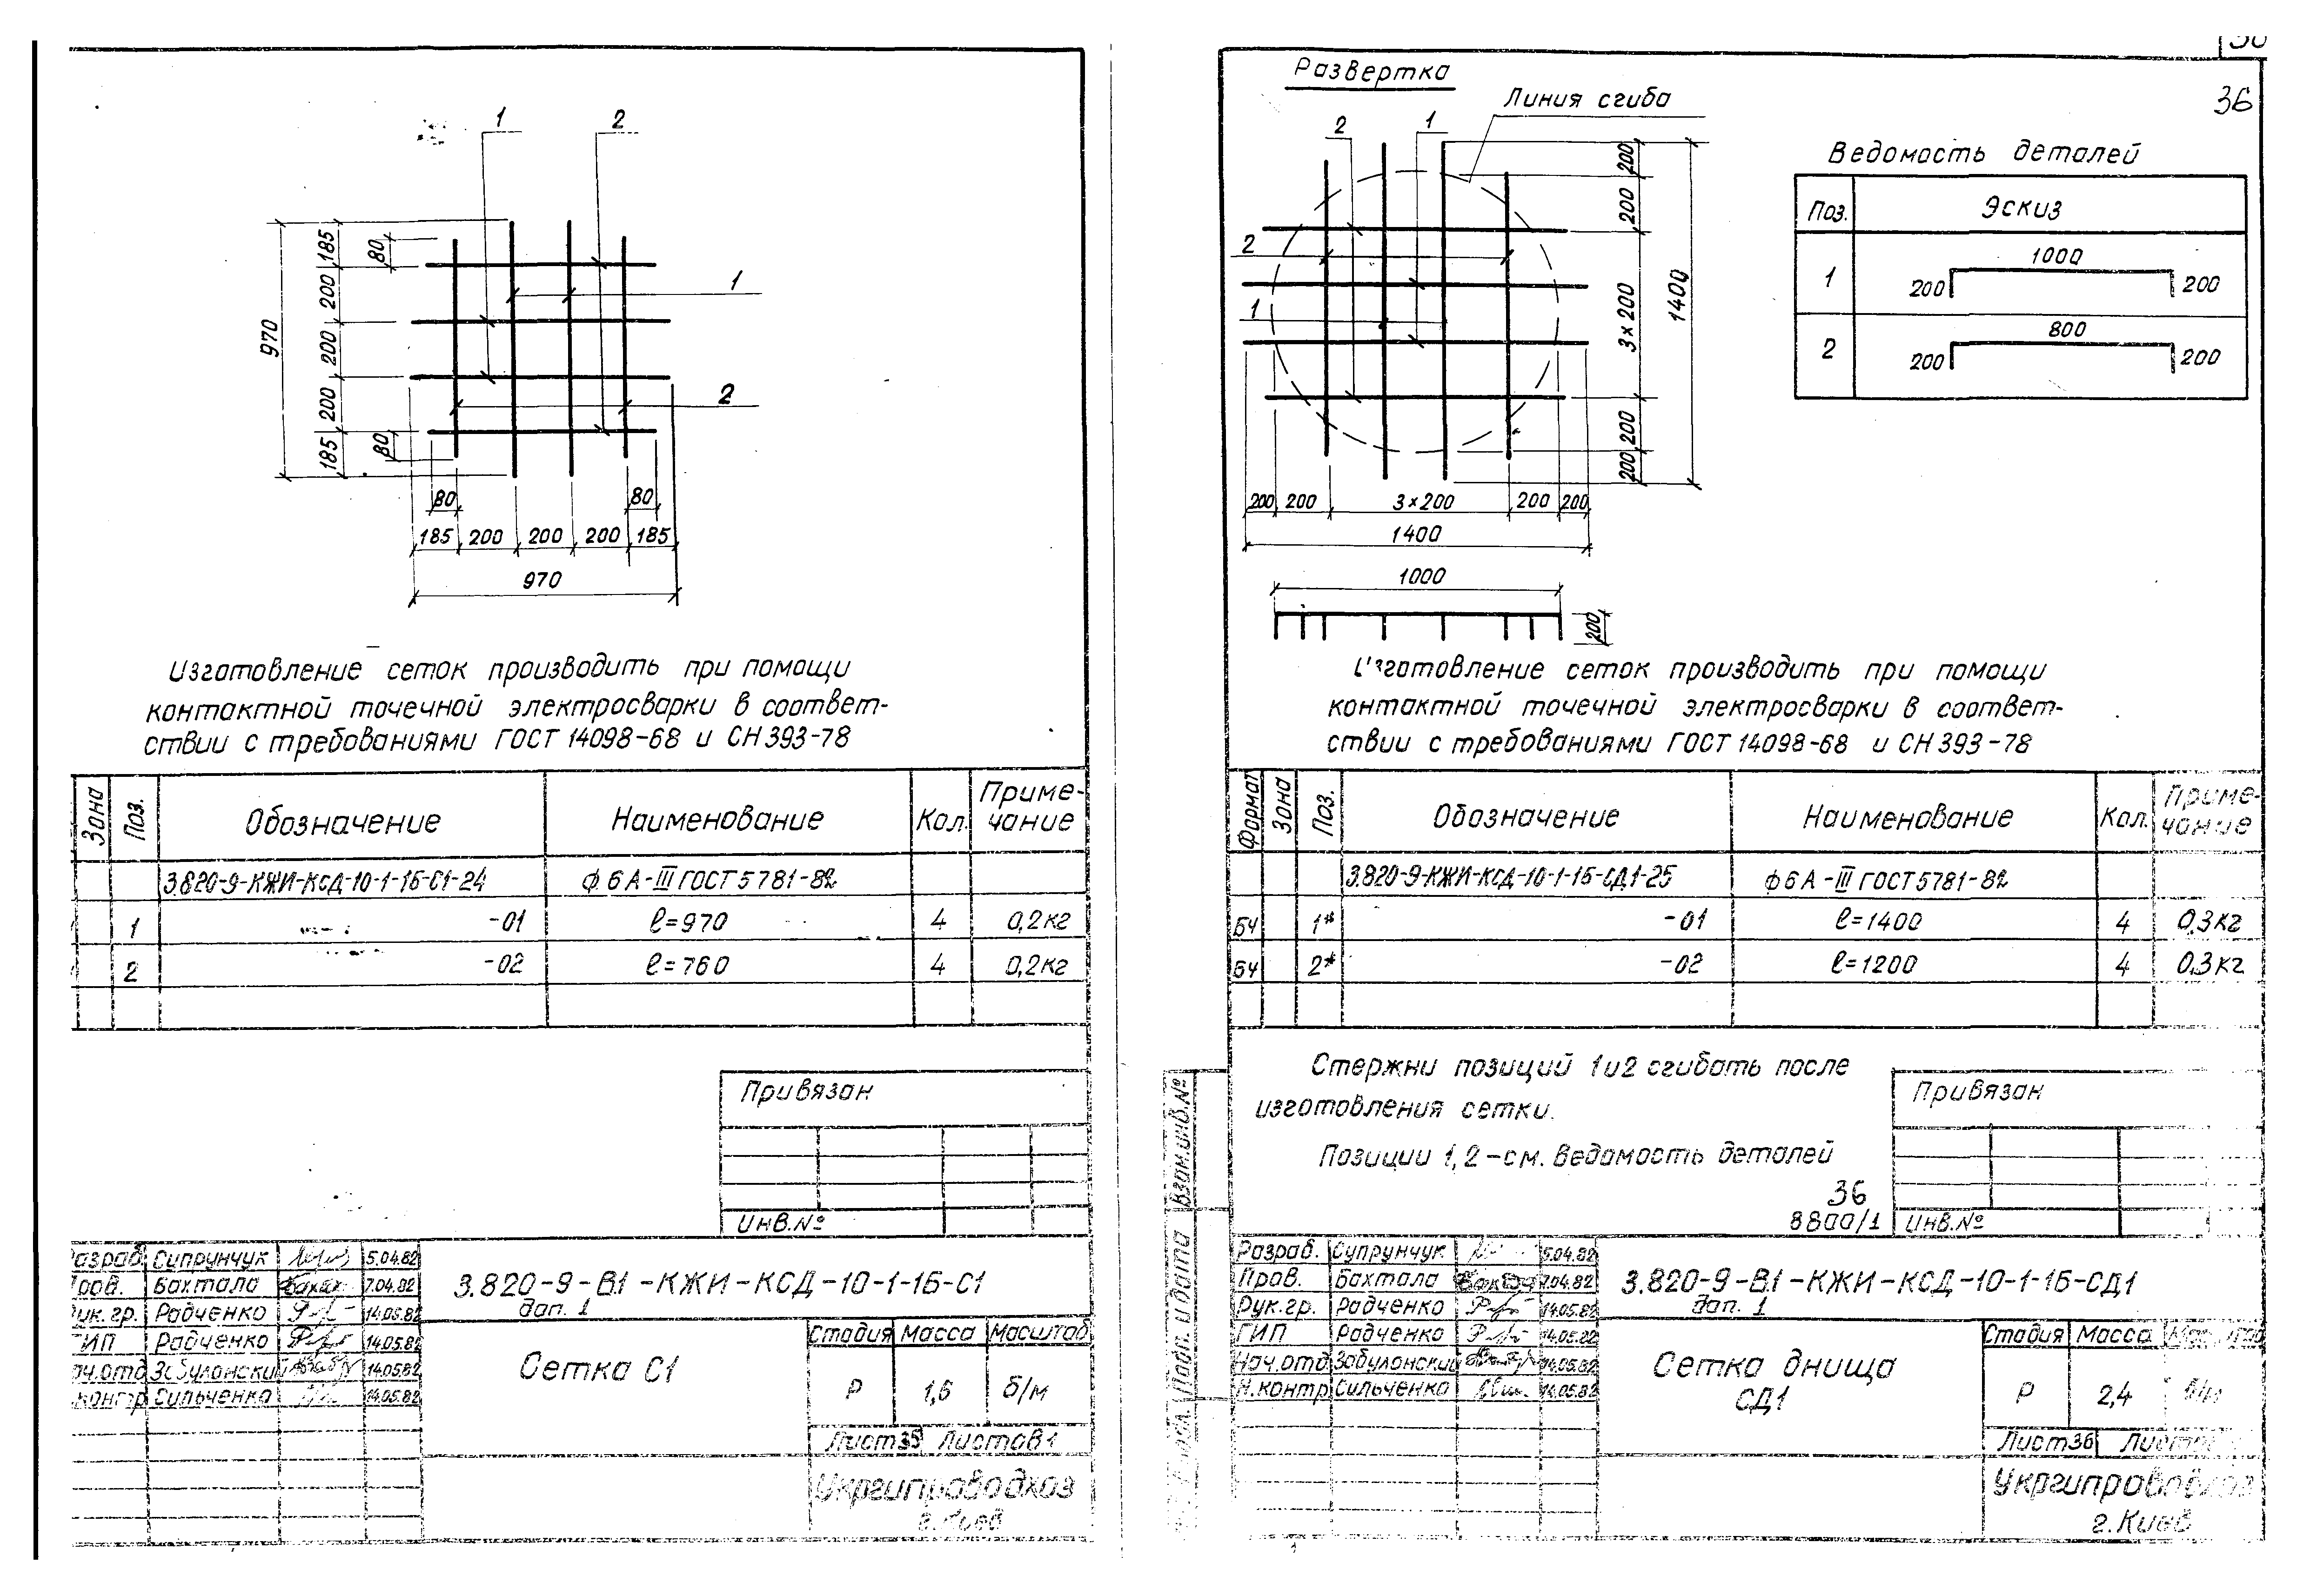 1
2
185
80
200
1
970
200
200
2
185
80
80
80
185
200
200
200
185
970
Изготовление сеток производить при помощи
контактной точечной электросварки в соответ-
ствии с требованиями ГОСТ 14098-68 и СН 393-78
Зона Поз. Обозначение Наименование Кол. Приме-
чание
3.820-9-КЖИ-КСД-10-1-1Б-С1-24 ф 6 А-III ГОСТ 5781-82
1 -01 ℓ=970 4 0,2кг
2 -02 ℓ=760 4 0,2кг
Привязан
Инв.№
Сипрунчук 5.04.82
Бахтала 7.04.82
Радченко 14.05.82
ГИП Радченко 14.05.82
Забуланский 14.05.82
Сильченко 14.05.82
3.820-9-В.1-КЖИ-КСД-10-1-1Б-С1
доп. 1
Сетка С1
Стадия Масса Масштаб
Р 1,6 б/м
Лист 35 Листов 1
Укргипроводхоз
г. Киев
Развертка
Линия сгиба
36
2
1
200
200
2
1
3×200
1400
200
200
200 200 3×200 200 200
1400
1000
200
Ведомость деталей
Поз. Эскиз
1 200 1000 200
2 200 800 200
Изготовление сеток производить при помощи
контактной точечной электросварки в соответ-
ствии с требованиями ГОСТ 14098-68 и СН 393-78
Формат Зона Поз. Обозначение Наименование Кол. Приме-
чание
3.820-9-КЖИ-КСД-10-1-1Б-СД1-25 ф 6 А-III ГОСТ 5781-82
БЧ 1* -01 ℓ=1400 4 0,3кг
БЧ 2* -02 ℓ=1200 4 0,3кг
Стержни позиций 1и2 сгибать после
изготовления сетки.
Позиции 1,2-см. Ведомость деталей
36
8800/1
Привязан
Инв.№
Взам.инв.№
Подп. и дата
Разраб. Супрунчук 5.04.82
Пров. Бахтала 7.04.82
Рук.гр. Радченко 14.05.82
ГИП Радченко 14.05.82
Нач.отд Забуланский 14.05.82
Н.контр Сильченко 14.05.82
3.820-9-В.1-КЖИ-КСД-10-1-1Б-СД1
доп. 1
Сетка днища
СД1
Стадия Масса
Р 2,4
Лист 36
Укргипроводхоз
г. Киев